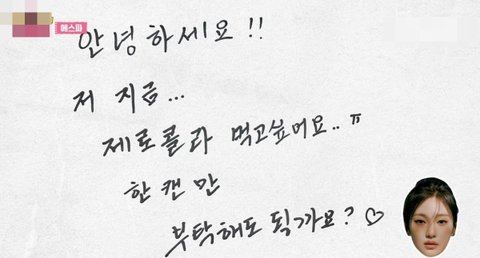 에스파
안녕하세요!!
저 지금...
제로콜라 먹고싶어요..ㅠ
한 캔만
부탁해도 될까요? ♡